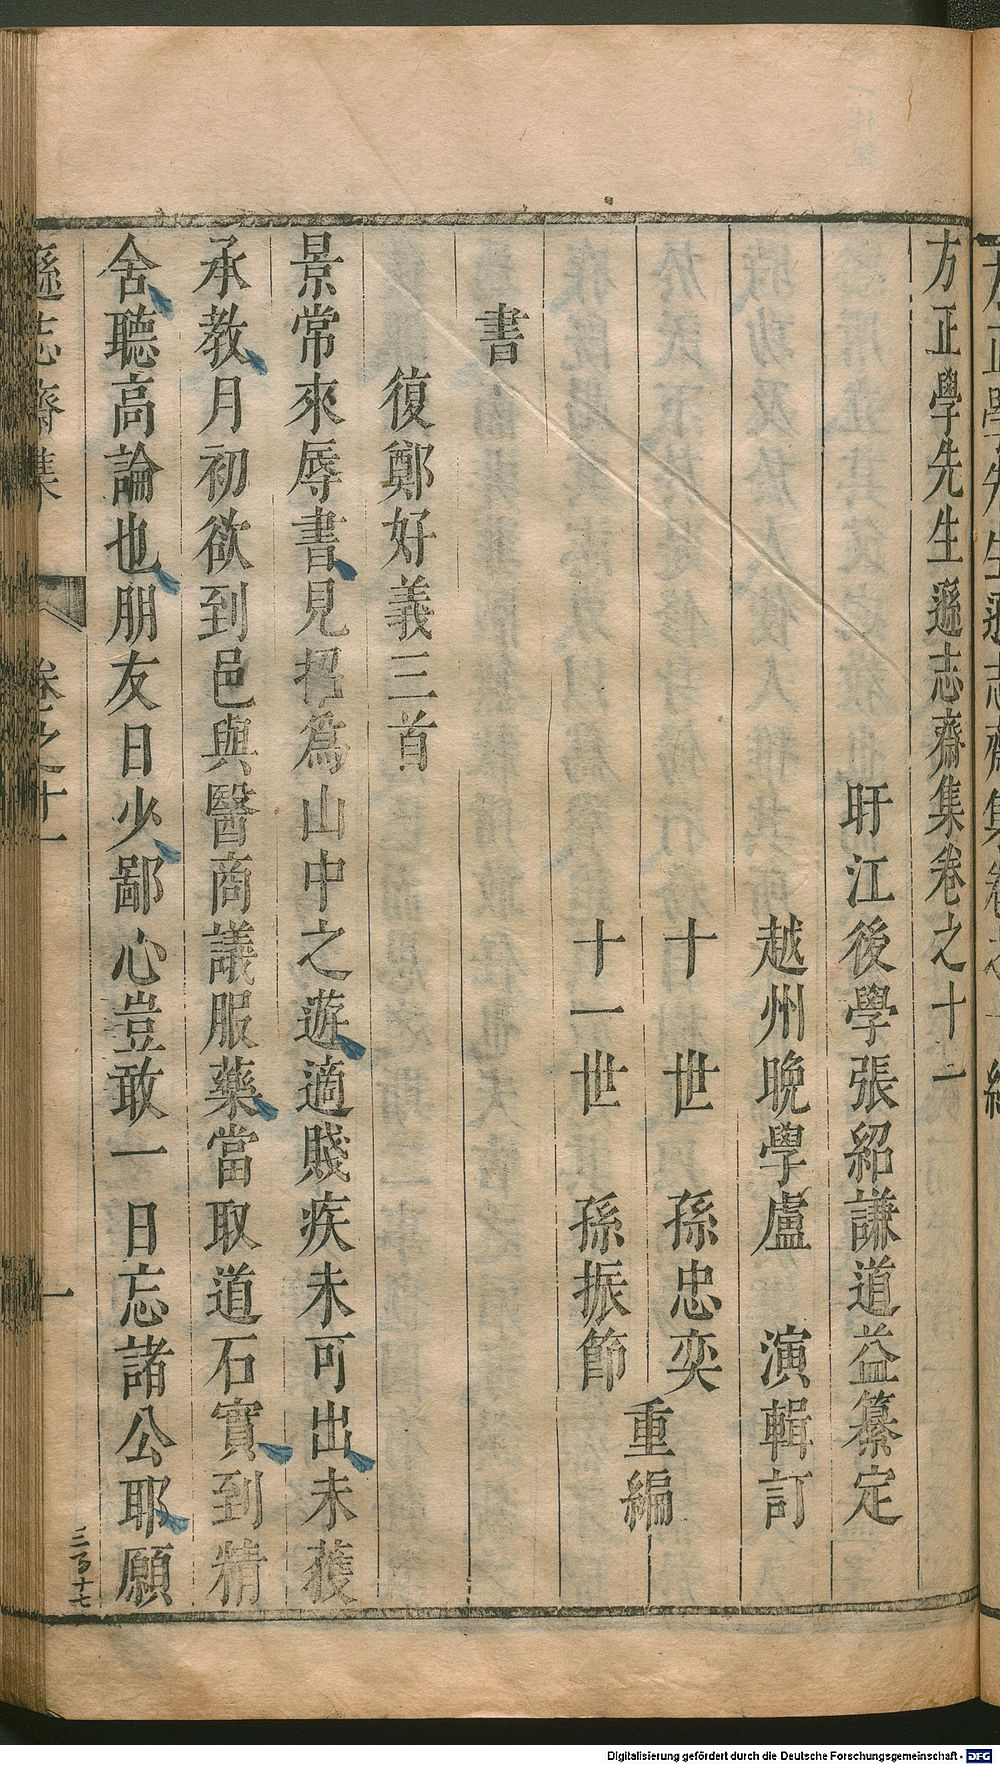 方正學先生遜志齋集卷之十一
盱江後學張紹謙道益纂定
越州晚學盧　演輯訂
十　世　孫忠奕
十一世　孫振節
重編
書
復鄭好義三首
景常來辱書見招爲山中之遊適賤疾未可出未獲
承教月初欲到邑與醫商議服藥當取道石實到精
舍聽高論也朋友日少鄙心豈敢一日忘諸公耶願
遜志齋集　卷之十一　一
三百十七
Digitalisierung gefördert durch die Deutsche Forschungsgemeinschaft - DFG